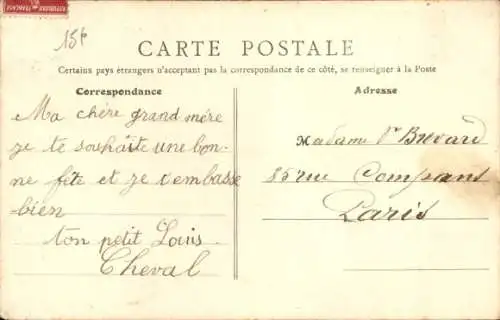 REPUBLIQUE FRANÇAISE
15f
CARTE POSTALE
Certains pays étrangers n'acceptant pas la correspondance de ce côté, se renseigner à la Poste
Correspondance
Adresse
Ma chère grand mére
je te souhaite une bon-
ne fête et je t'embasse
bien
ton petit Louis
Cheval
Madame Ve
85 rue Compans
Paris